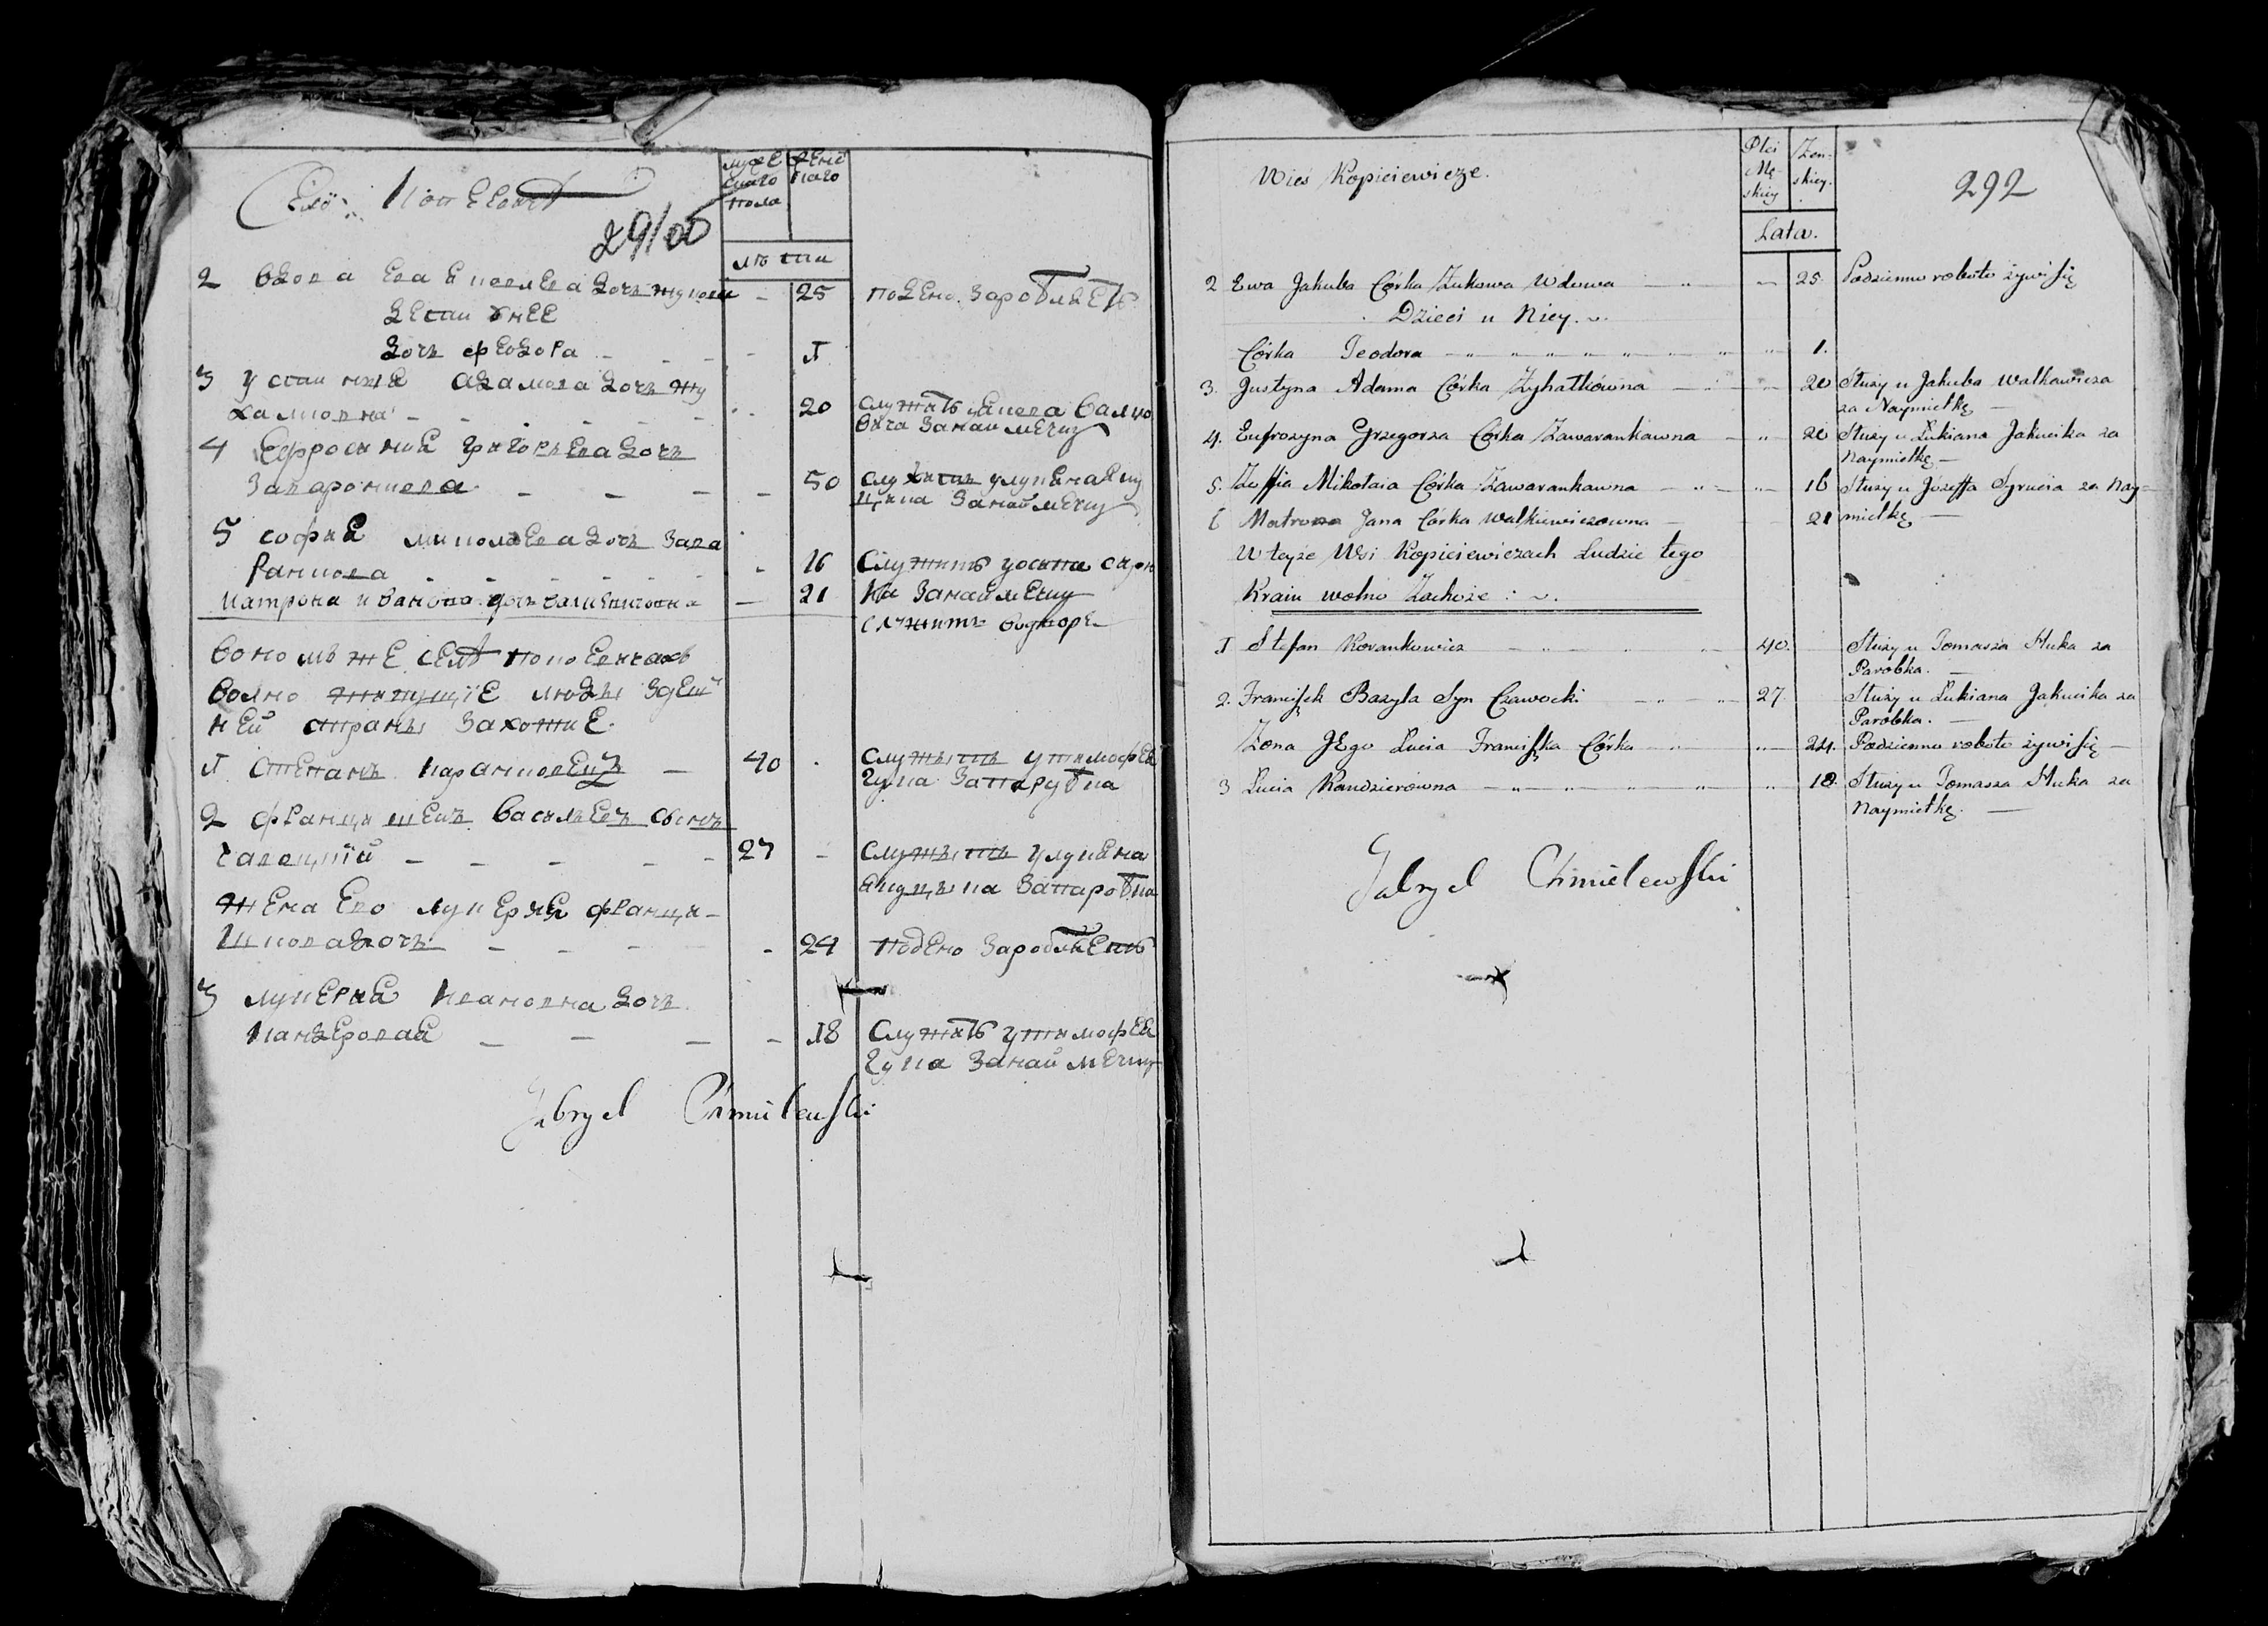 Село Копеевичи
291об
мужескаго пола
женскаго
лѣта
2 вдова ЕваЕковлева дочь жукова - 25 Поденно заробляеть
дети у нее
дочь феодора - - - - 1
3 устиния адамова дочь жи
халковна - - - - - 20 служить у Екова валко
вича занаймечку
4 Ефросиния григорьева дочь
Заваронкова - - - - 50 служить у лукена Еку
цика занаймечку
5 софия миколаева дочь Зава
ранкова - - - - - 16 Служить у осипа сыри
Матрона иванова дочь валкевичовна - 21 ца Занаймечку
служить
вономъ же селѣ копоевичахъ
волно живущие люды здеш
ней страны Захожие.
1 Степанъ Каранковичъ - 40 служыть у тимофея
гука Запарубка
2 францишекъ васильевъ сынъ
чавоцкий - - - - - 27 - служыть у лукена
Екуцыка Запаробка
жена Его лукерия франци-
шкова дочь - - - - 24 поденно заробляеть
3 лукерия ивановна дочь
Кандеровая - - - - 18 Служить у тимофея
гука Занаймечку
Gabryel Chmielewski
Wieś Kopiciewicze.
Płci Mę-skiey
Żeń-skiey.
Lata.
292
2 Ewa Jakuba Córka Żukowa Wdowa - 25. Podzienno roboto żywi się
Dzieci u Niey.
Córka Teodora - 1.
3. Justyna Adama Córka Żyhałkówna - 20 Służy u Jakuba Walkawicza
za Naymitkę -
4. Eufrozyna Grzegorza Córka Zawarankawna - 20 Służy u Łukiana Jakucika za
Naymitkę -
5. Zoffia Mikołaia Córka Zawarankawna - 16 Służy u Józeffa Syrucia za Nay-
6 Matrona Jana Córka Walkiewiczowna - 21 mitkę -
W teyże Wsi Kopiciewiczach Ludzie tego
Kraiu wolno Zachoże :
1 Stefan Korankowicz - 40. Służy u Tomasza Huka za
Parobka. -
2. Franciszek Bazyla Syn Czawocki - 27 Służy u Łukiana Jakucika za
Parobka. -
Żona JEgo Łucia Franciszka Córka - 24. Podzienno roboto żywi się -
3 Łucia Kandzierówna - 18. Służy u Tomasza Huka za
Naymitkę. -
Gabryel Chmielewski